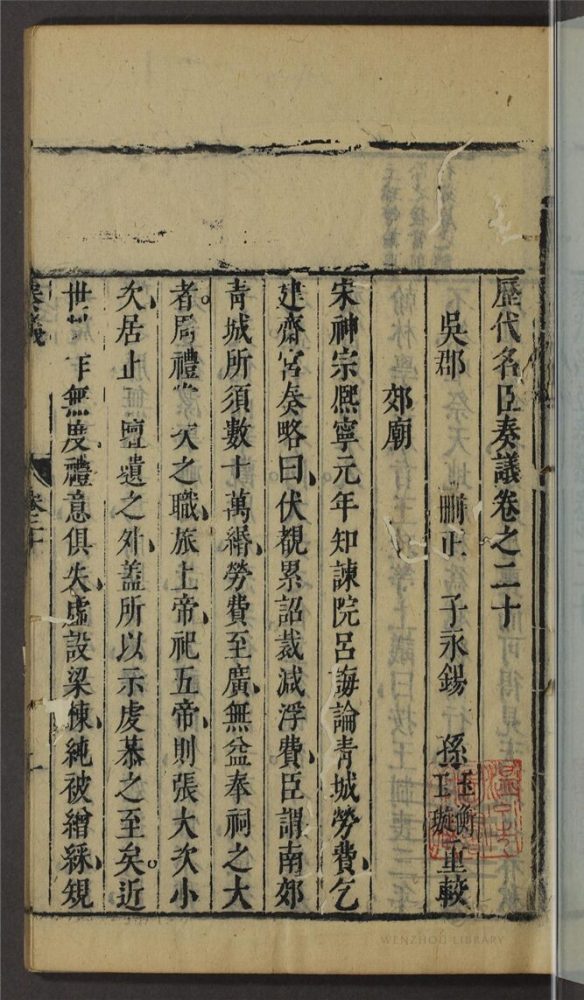 歷代名臣奏議卷之二十
吳郡 刪正 子永錫 孫玉衡玉璇重較
郊廟
宋神宗熙寧元年知諫院呂誨論青城勞費乞
建齋宮奏略曰伏覩累詔裁減浮費臣謂南郊
青城所須數十萬緡勞費至廣無益奉祠之大
者周禮 次之職旅上帝祀五帝則張大次小
次居止 壇壝之外蓋所以示虔恭之至矣近
世 無度禮意俱失虛設梁棟純被繒綵規
奏議 卷二十 一
WENZHOU LIBRARY